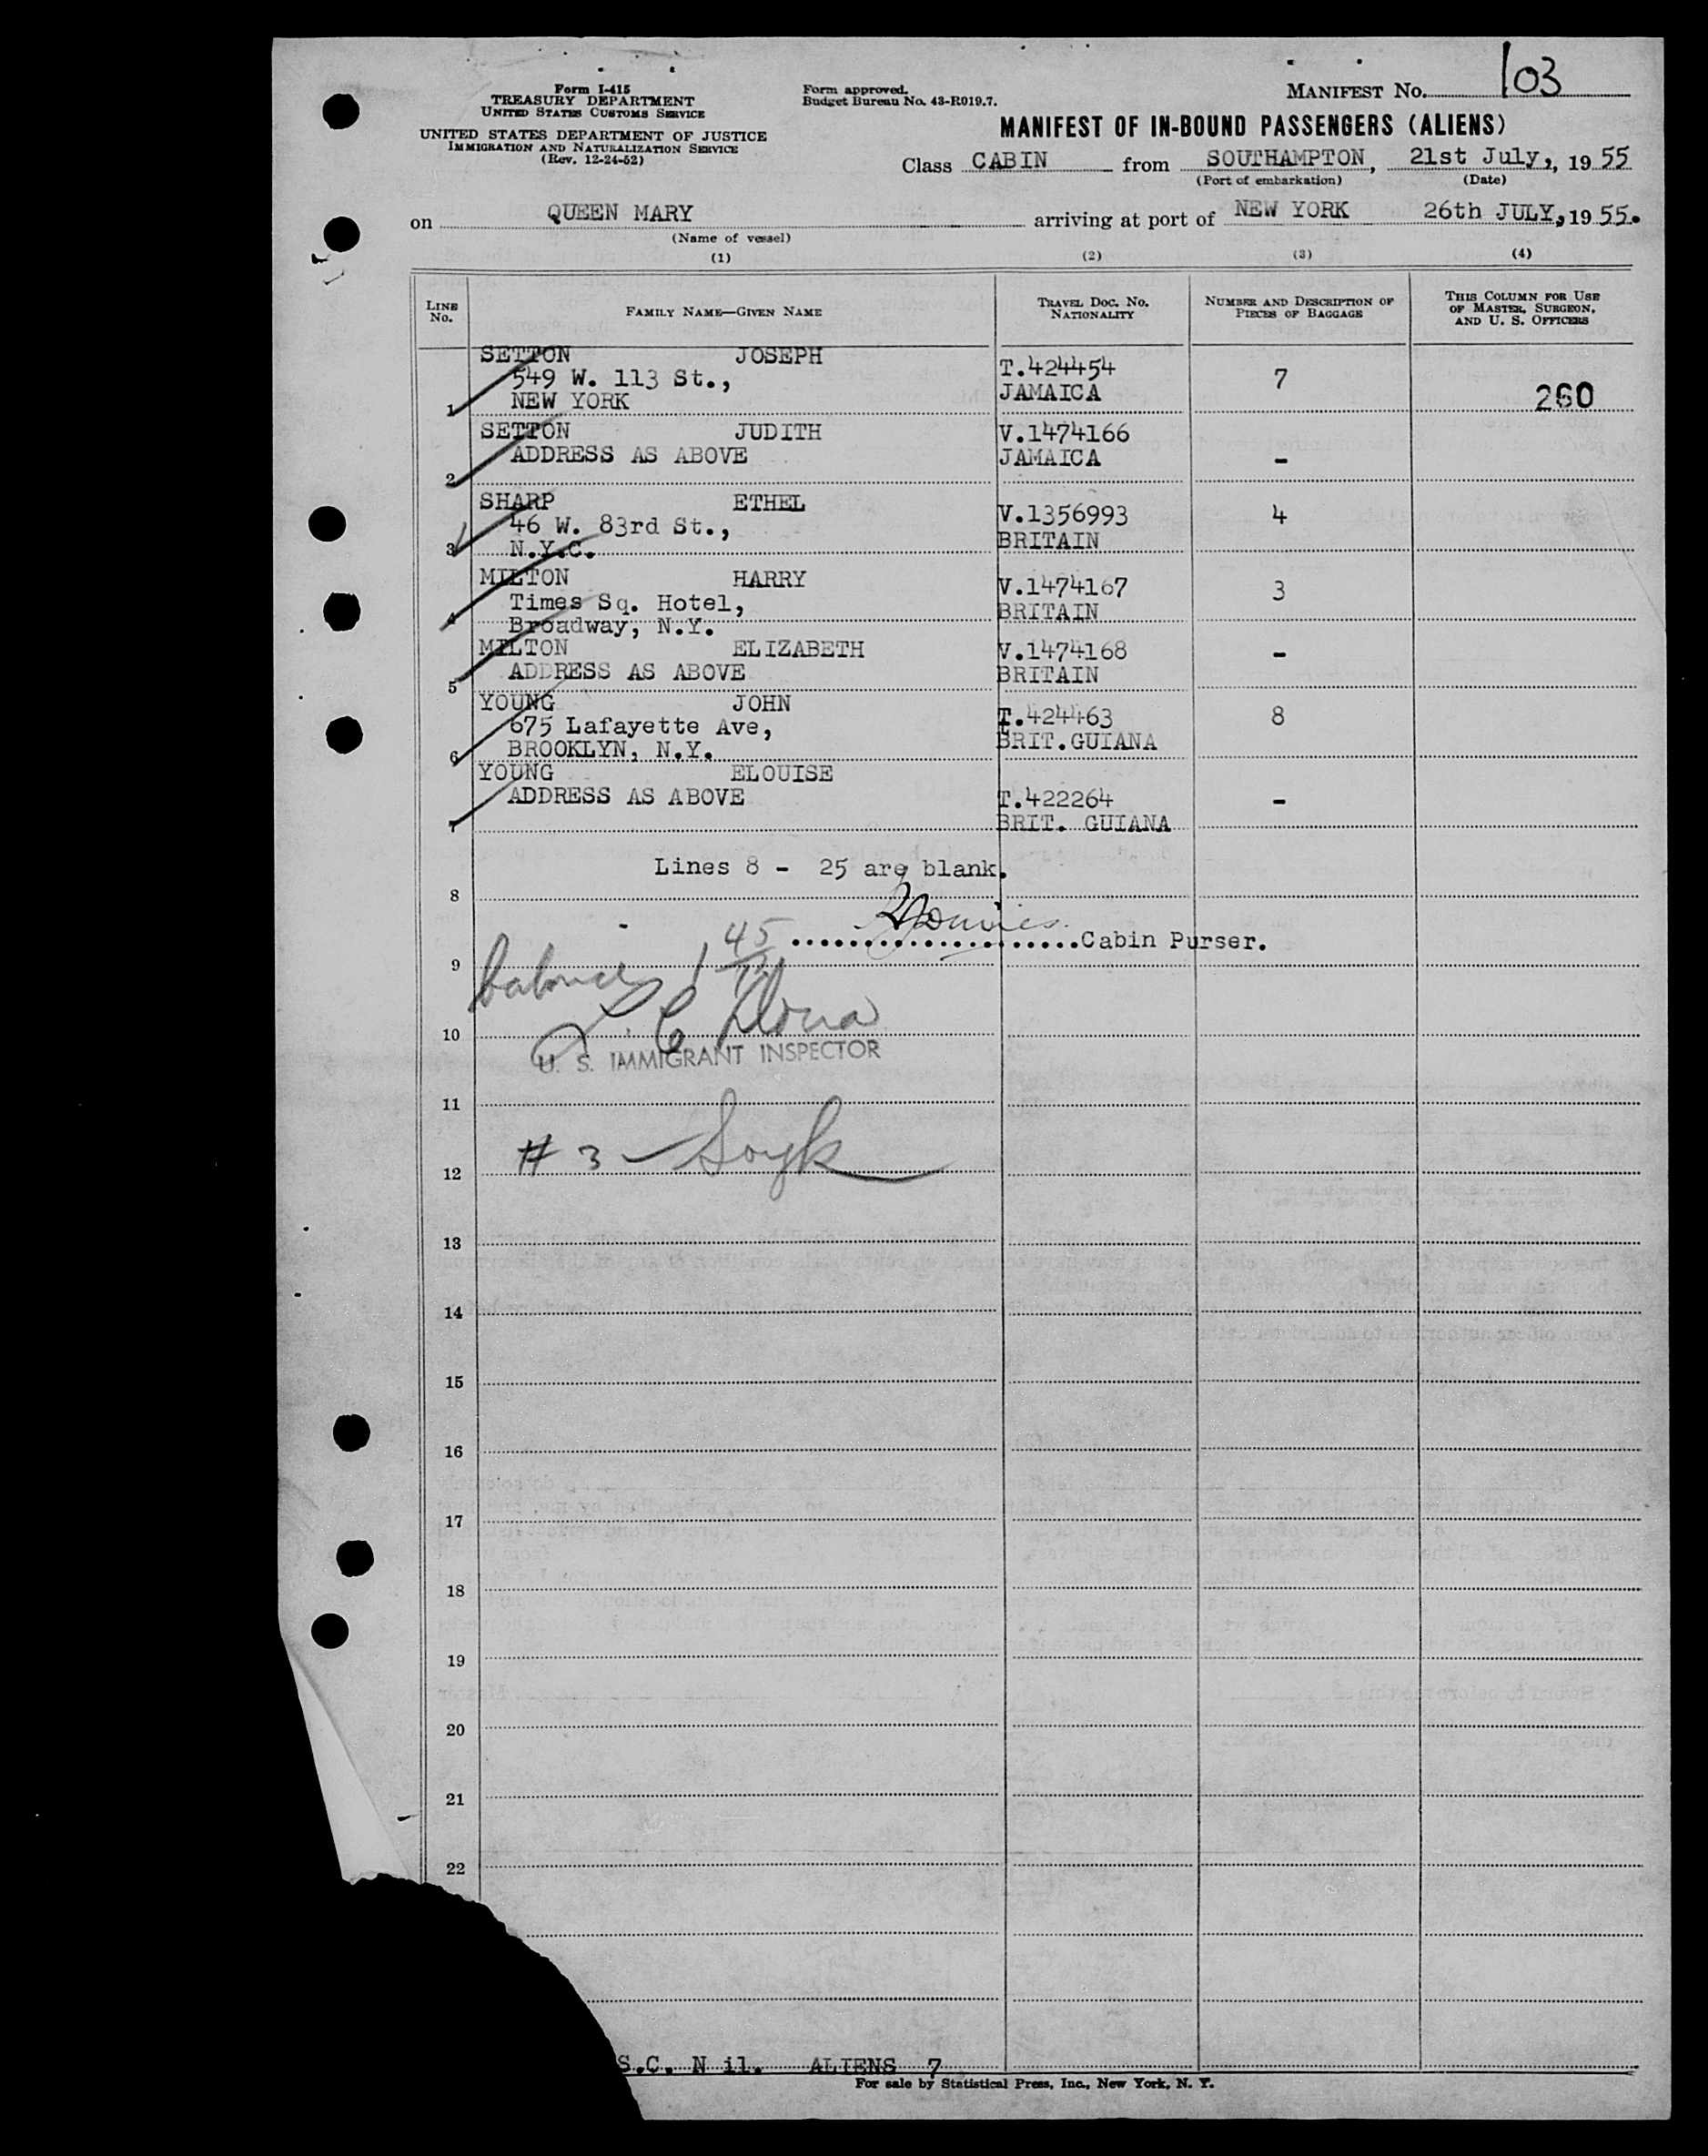 Form I-415
TREASURY DEPARTMENT
UNITED STATES CUSTOMS SERVICE
UNITED STATES DEPARTMENT OF JUSTICE
IMMIGRATION AND NATURALIZATION SERVICE
(Rev. 12-24-52)
Form approved.
Budget Bureau No. 43-R019.7.
MANIFEST No. 103
MANIFEST OF IN-BOUND PASSENGERS (ALIENS)
Class CABIN from SOUTHAMPTON, 21st July, 1955
(Port of embarkation) (Date)
on QUEEN MARY arriving at port of NEW YORK 26th JULY, 1955.
(Name of vessel)
(1) (2) (3) (4)
LINE No. FAMILY NAME—GIVEN NAME TRAVEL DOC. No. NATIONALITY NUMBER AND DESCRIPTION OF PIECES OF BAGGAGE THIS COLUMN FOR USE OF MASTER, SURGEON, AND U. S. OFFICERS
SETTON JOSEPH
549 W. 113 St., T.424454 7
1 NEW YORK JAMAICA 260
SETTON JUDITH V.1474166
ADDRESS AS ABOVE JAMAICA -
2
SHARP ETHEL
46 W. 83rd St., V.1356993 4
3 N.Y.C. BRITAIN
MILTON HARRY V.1474167 3
Times Sq. Hotel, BRITAIN
4 Broadway, N.Y.
MILTON ELIZABETH V.1474168 -
5 ADDRESS AS ABOVE BRITAIN
YOUNG JOHN
675 Lafayette Ave, T.424463 8
6 BROOKLYN, N.Y. BRIT.GUIANA
YOUNG ELOUISE
ADDRESS AS ABOVE T.422264 -
7 BRIT. GUIANA
Lines 8 - 25 are blank.
8
45 Cabin Purser.
9
10
U. S. IMMIGRANT INSPECTOR
11
# 3 -
12
13
14
15
16
17
18
19
20
21
22
S.C. Nil. ALIENS 7
For sale by Statistical Press, Inc., New York, N. Y.